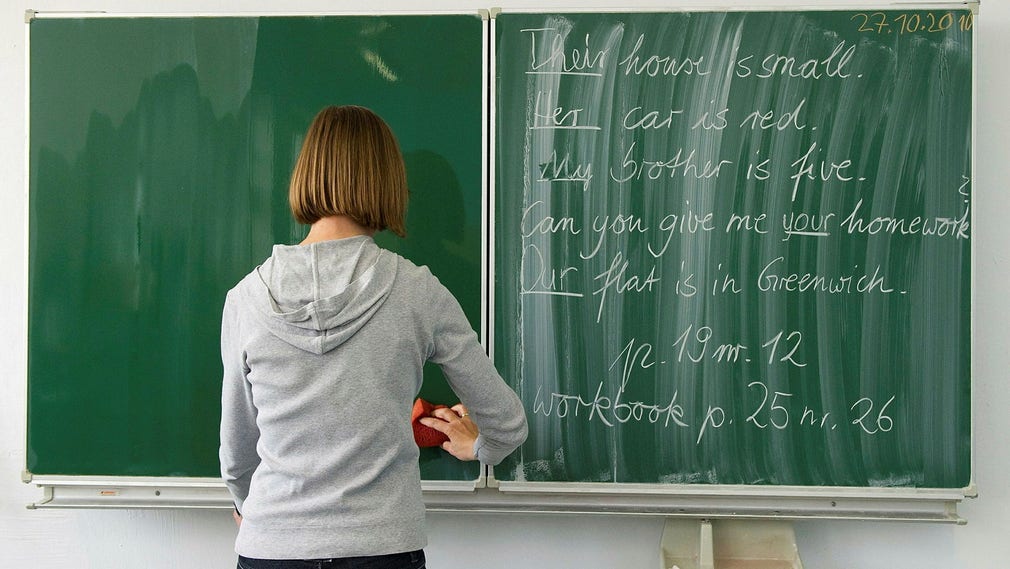 27.10.2010
Their house is small.
Her car is red.
My brother is five.
Can you give me your homework?
Our flat is in Greenwich.
p. 19 nr. 12
workbook p. 25 nr. 26